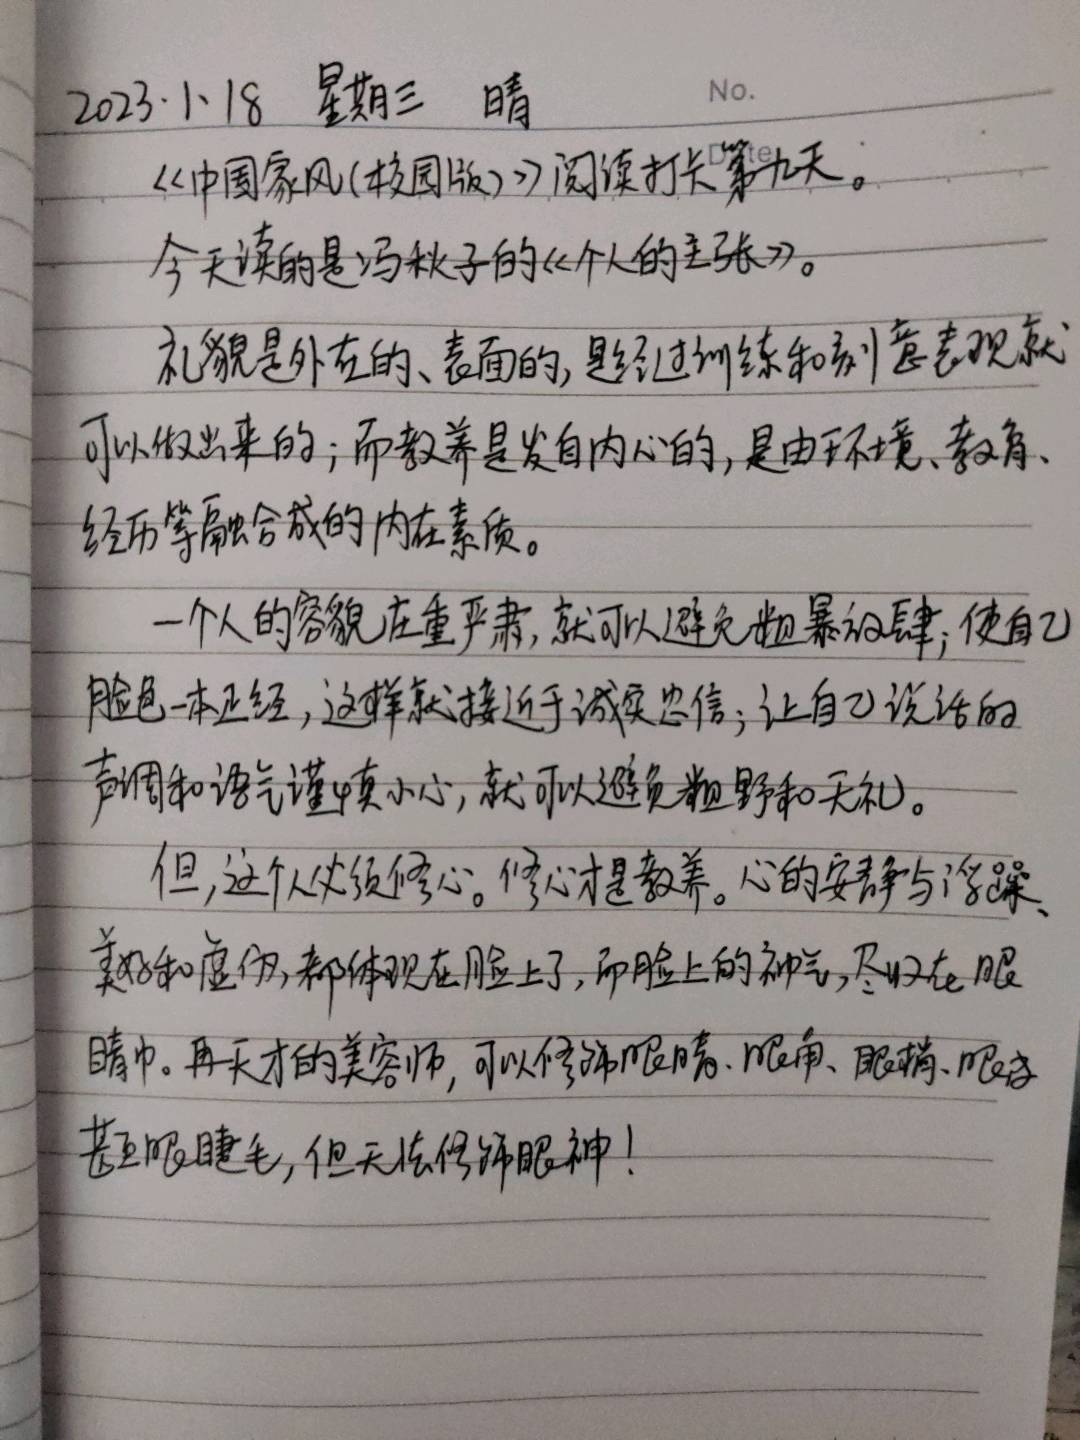 2023.1.18 星期三 晴
No.
Date
《中国家风(校园版)》阅读打卡第九天。
今天读的是冯秋子的《个人的主张》。
礼貌是外在的、表面的,是经过训练和刻意表现就
可以做出来的;而教养是发自内心的,是由于环境、教育、
经历等融合成的内在素质。
一个人的容貌庄重严肃,就可以避免粗暴放肆;使自己
脸色一本正经,这样就接近于诚实忠信;让自己说话的
声调和语气谨慎小心,就可以避免粗野和无礼。
但,这个人必须修心。修心才是教养。心的安静与浮躁、
美好和虚伪,都体现在脸上了,而脸上的神气,尽收在眼
睛中。再天才的美容师,可以修饰眼睛、眼角、眼梢、眼
甚至眼睫毛,但无法修饰眼神!